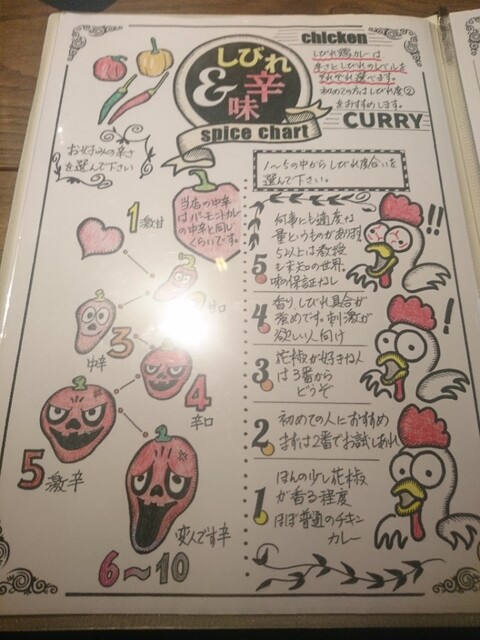 しびれ
&
辛味
spice chart
chicken
しびれ鶏カレーは
辛さとしびれのレベルを
それぞれ選べます。
初めての方はしびれ度②
をおすすめします。
CURRY
お好みの辛さ
を選んで下さい
当店の中辛
はバーモントカレー
の中辛と同じ
くらいです。
1 激甘
口
3
中辛
4
辛口
5 激辛
変人です辛
6〜10
1〜5の中からしびれ度合いを
選んで下さい。
何事にも適度な
量というものがあります
5以上は教授
も未知の世界。
味の保証なし
5
!!
香りしびれ具合が
強めです。刺激が
欲しい人向け
4
!
花椒が好きな人
は3番から
どうぞ
3
初めての人におすすめ
まずは2番でお試しあれ
2
ほんの少し花椒
が香る程度
ほぼ普通のチキン
カレー
1